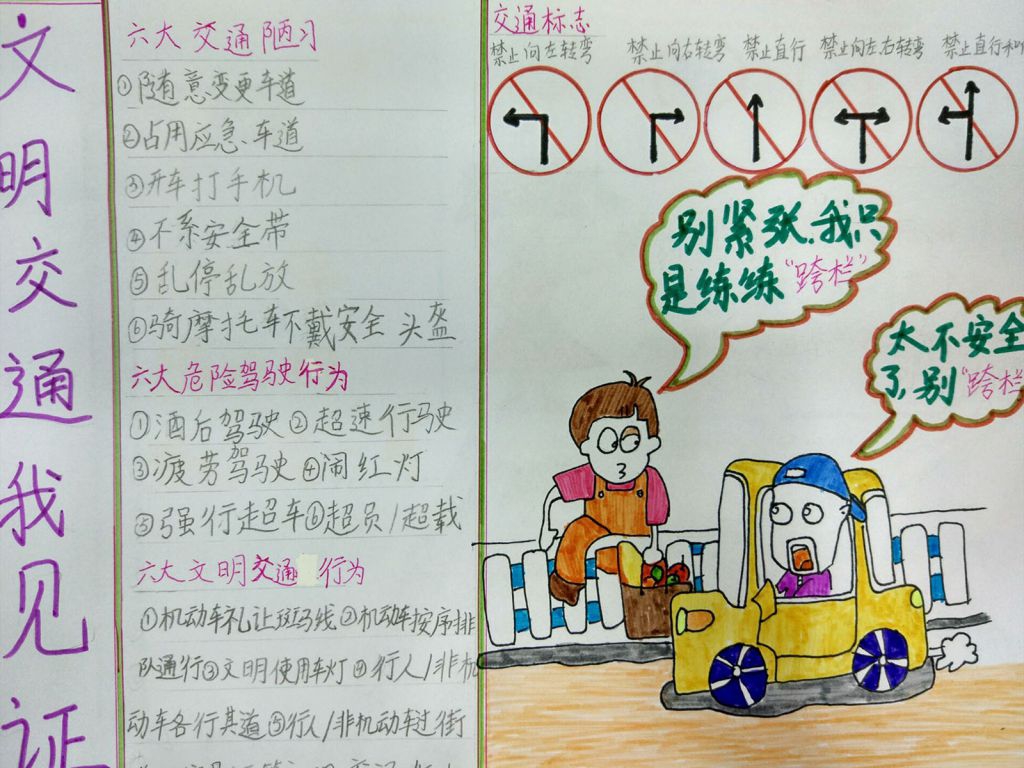 文明交通我见证
六大交通陋习
①随意变更车道
②占用应急车道
③开车打手机
④不系安全带
⑤乱停乱放
⑥骑摩托车不戴安全头盔
六大危险驾驶行为
①酒后驾驶②超速行驶
③疲劳驾驶④闹红灯
⑤强行超车⑥超员/超载
六大文明交通行为
①机动车礼让斑马线②机动车按序排
队通行③文明使用车灯④行人/非机
动车各行其道⑤行人/非机动车过街
交通标志
禁止向左转弯
禁止向右转弯
禁止直行
禁止向左右转弯
禁止直行和
别紧张.我只
是练练“跨栏”
太不安全
了,别“跨栏